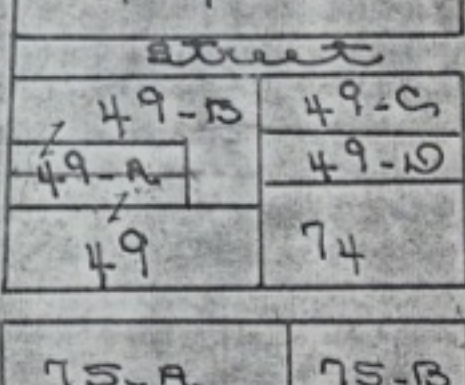 Street
49-B 49-C
49-A 49-D
49 74
75-A 75-B